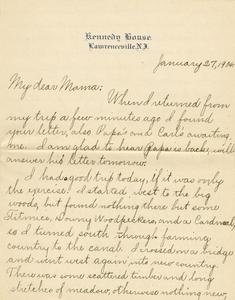 Kennedy House
Lawrenceville, N.J.
January 27, 1904
My dear Mama:
When I returned from
my trip a few minutes ago I found
your letter, also Papa's and Carl's awaiting
me. I am glad to hear Papa is back, will
answer his letter tomorrow.
I had a good trip today, if it was only
the exercise! I started west to the big
woods, but found nothing there but some
Titmice, Downy Woodpeckers, and a Cardinal,
so I turned south through farming
country to the canal. I crossed on a bridge
and went west again into new country.
There was some scattered timber and long
stretches of meadow, otherwise nothing new,